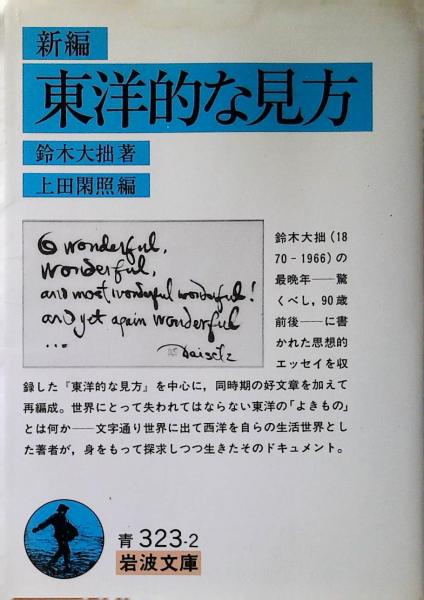 新編
東洋的な見方
鈴木大拙著
上田閑照編
O wonderful,
wonderful,
and most wonderful wonderful!
and yet again wonderful
...
Daisetz
鈴木大拙(18
70-1966)の
最晩年――驚
くべし,90歳
前後――に書
かれた思想的
エッセイを収
録した『東洋的な見方』を中心に,同時期の好文章を加えて
再編成。世界にとって失われてはならない東洋の「よきもの」
とは何か――文字通り世界に出て西洋を自らの生活世界とし
た著者が,身をもって探求しつつ生きたそのドキュメント。
青 323-2
岩波文庫